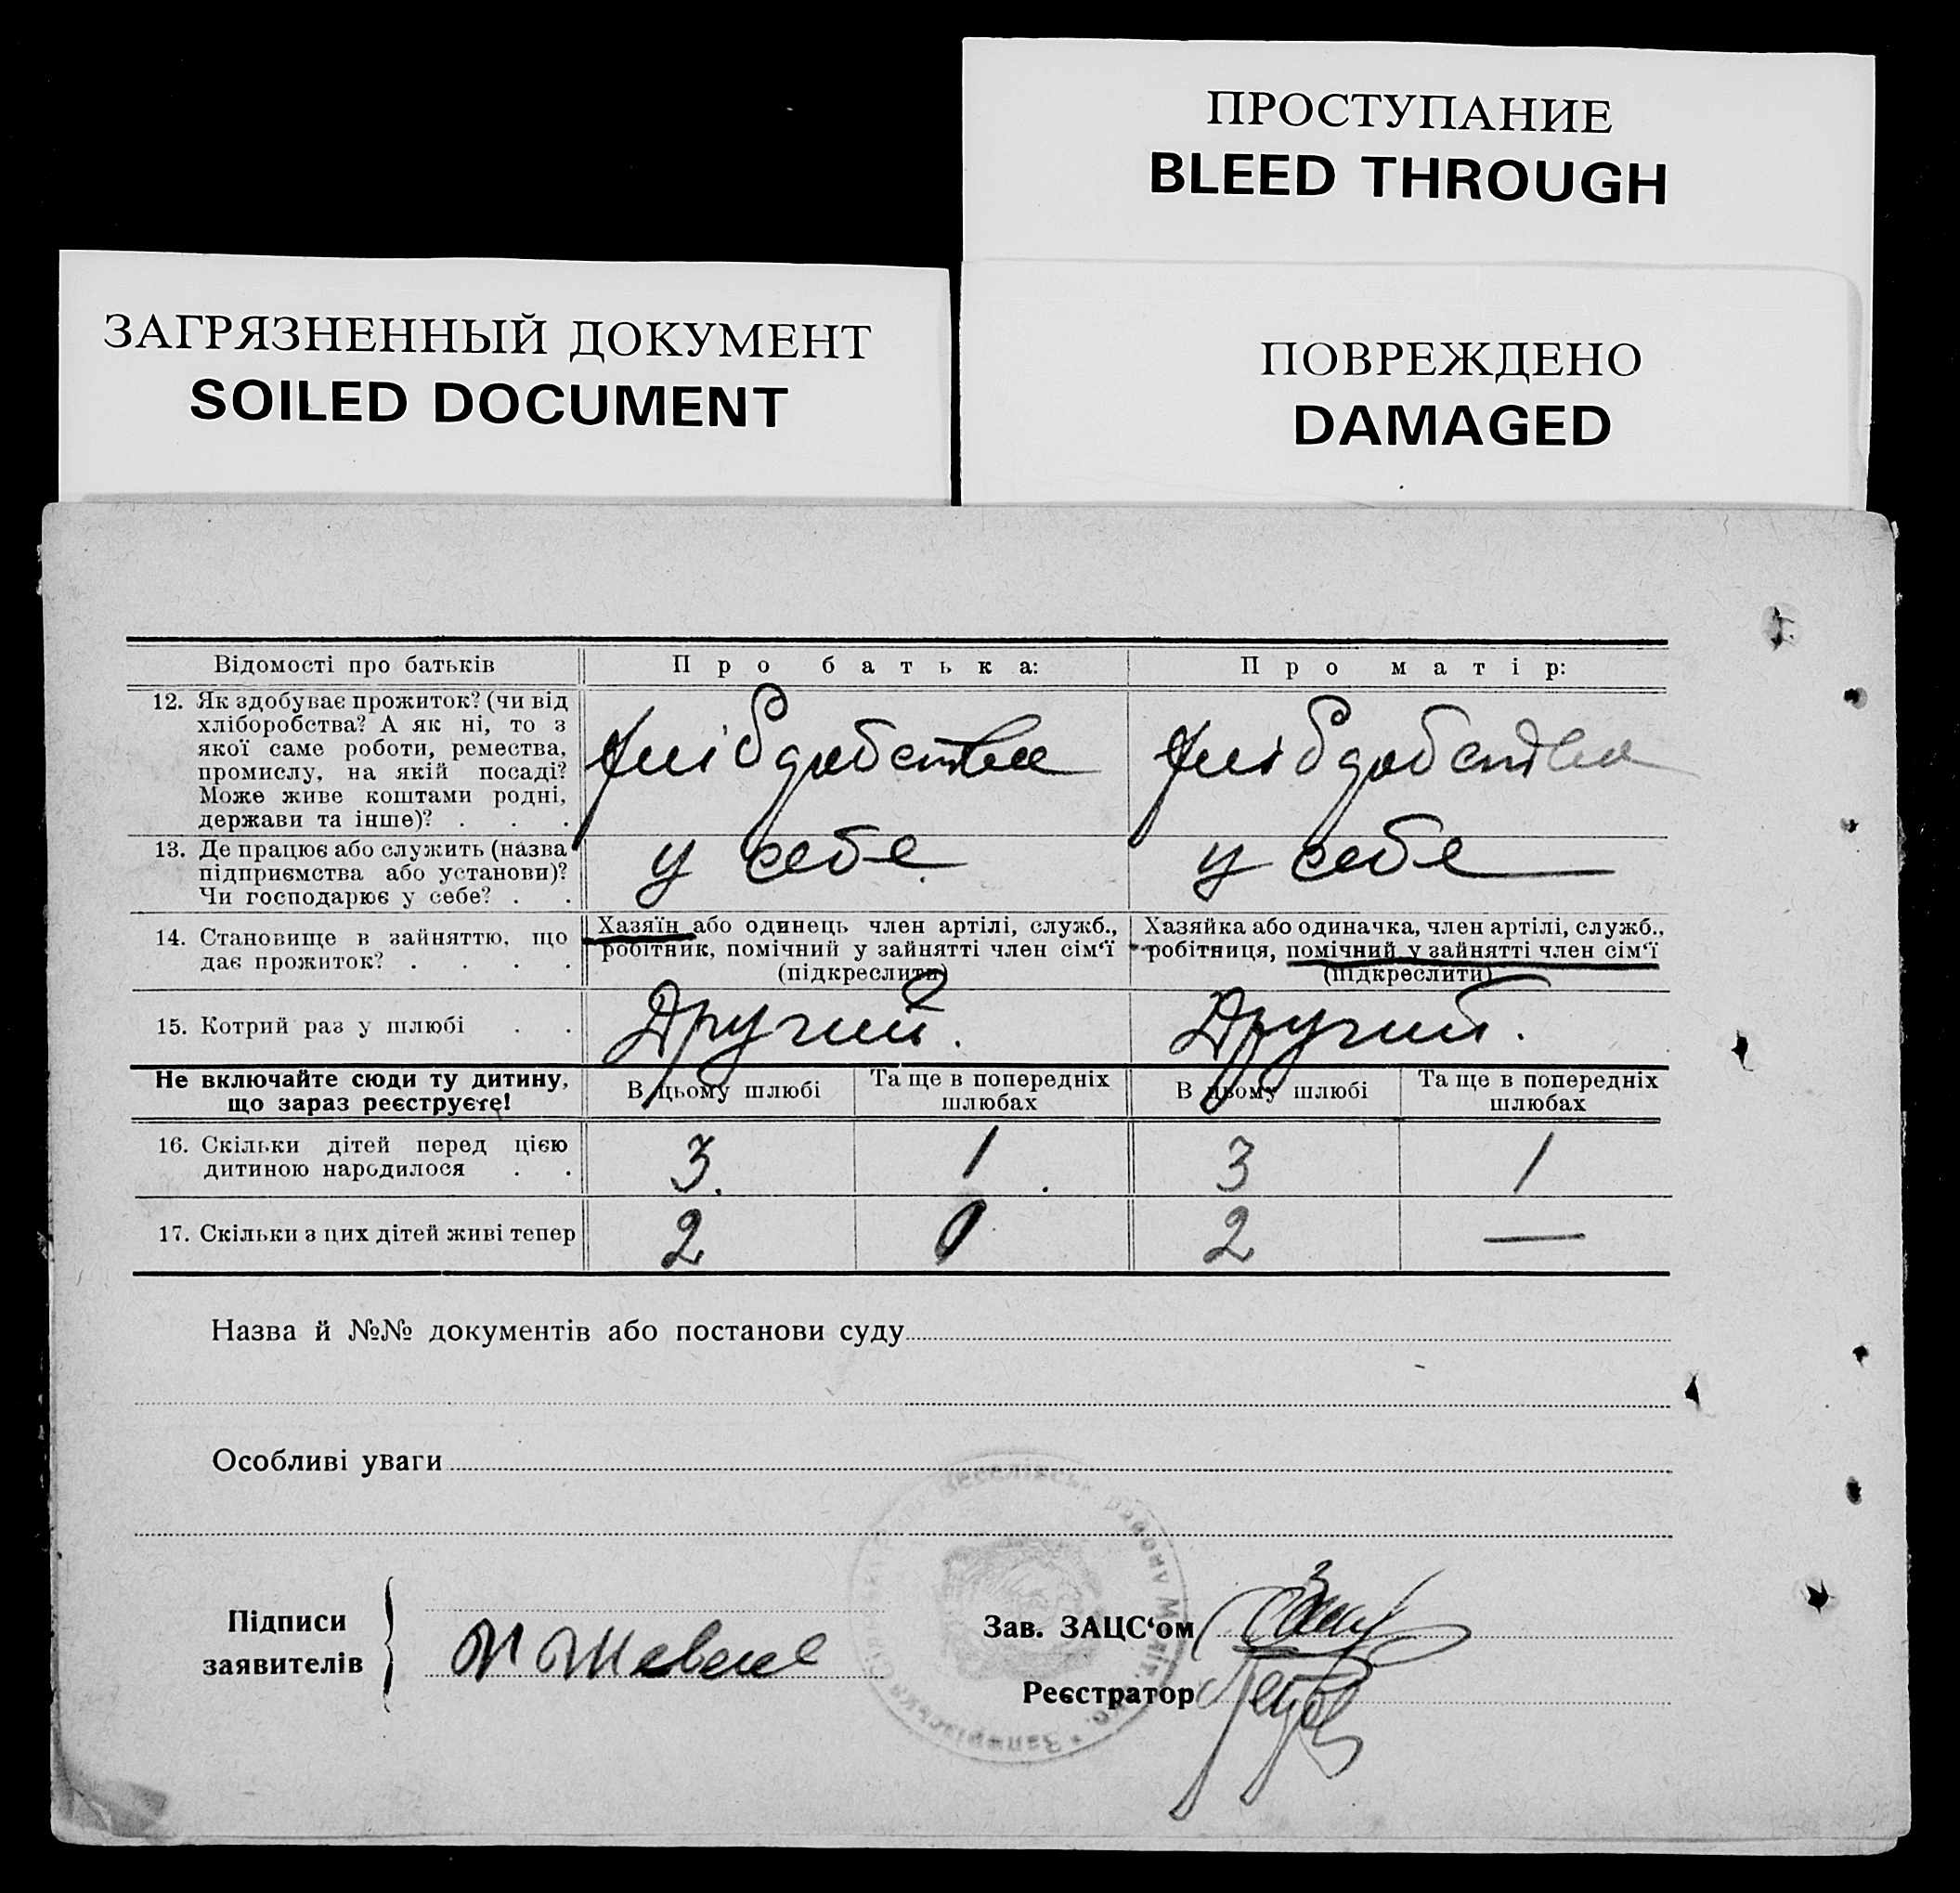 ПРОСТУПАНИЕ
BLEED THROUGH
ЗАГРЯЗНЕННЫЙ ДОКУМЕНТ
SOILED DOCUMENT
ПОВРЕЖДЕНО
DAMAGED
Відомості про батьків
Про батька:
Про матір:
12. Як здобуває прожиток? (чи від
хліборобства? А як ні, то з
якої саме роботи, ремества,
промислу, на якій посаді?
Може живе коштами родні,
держави та інше)? . . .
13. Де працює або служить (назва
підприємства або установи)?
Чи господарює у себе? . .
у себе
у себе
14. Становище в зайняттю, що
дає прожиток? . . . .
Хазяїн або одинець член артілі, служб.,
робітник, помічний у зайнятті член сім‘ї
(підкреслити)
Хазяйка або одиначка, член артілі, служб.,
робітниця, помічний у зайнятті член сім‘ї
(підкреслити)
15. Котрий раз у шлюбі . .
Другий.
Другий.
Не включайте сюди ту дитину,
що зараз реєструєте!
В цьому шлюбі
Та ще в попередніх
шлюбах
В цьому шлюбі
Та ще в попередніх
шлюбах
16. Скільки дітей перед цією
дитиною народилося . .
3.
1.
3
1
17. Скільки з цих дітей живі тепер
2
0
2
—
Назва й №№ документів або постанови суду
Особливі уваги
Підписи
заявителів
Зав. ЗАЦС‘ом
Реєстратор